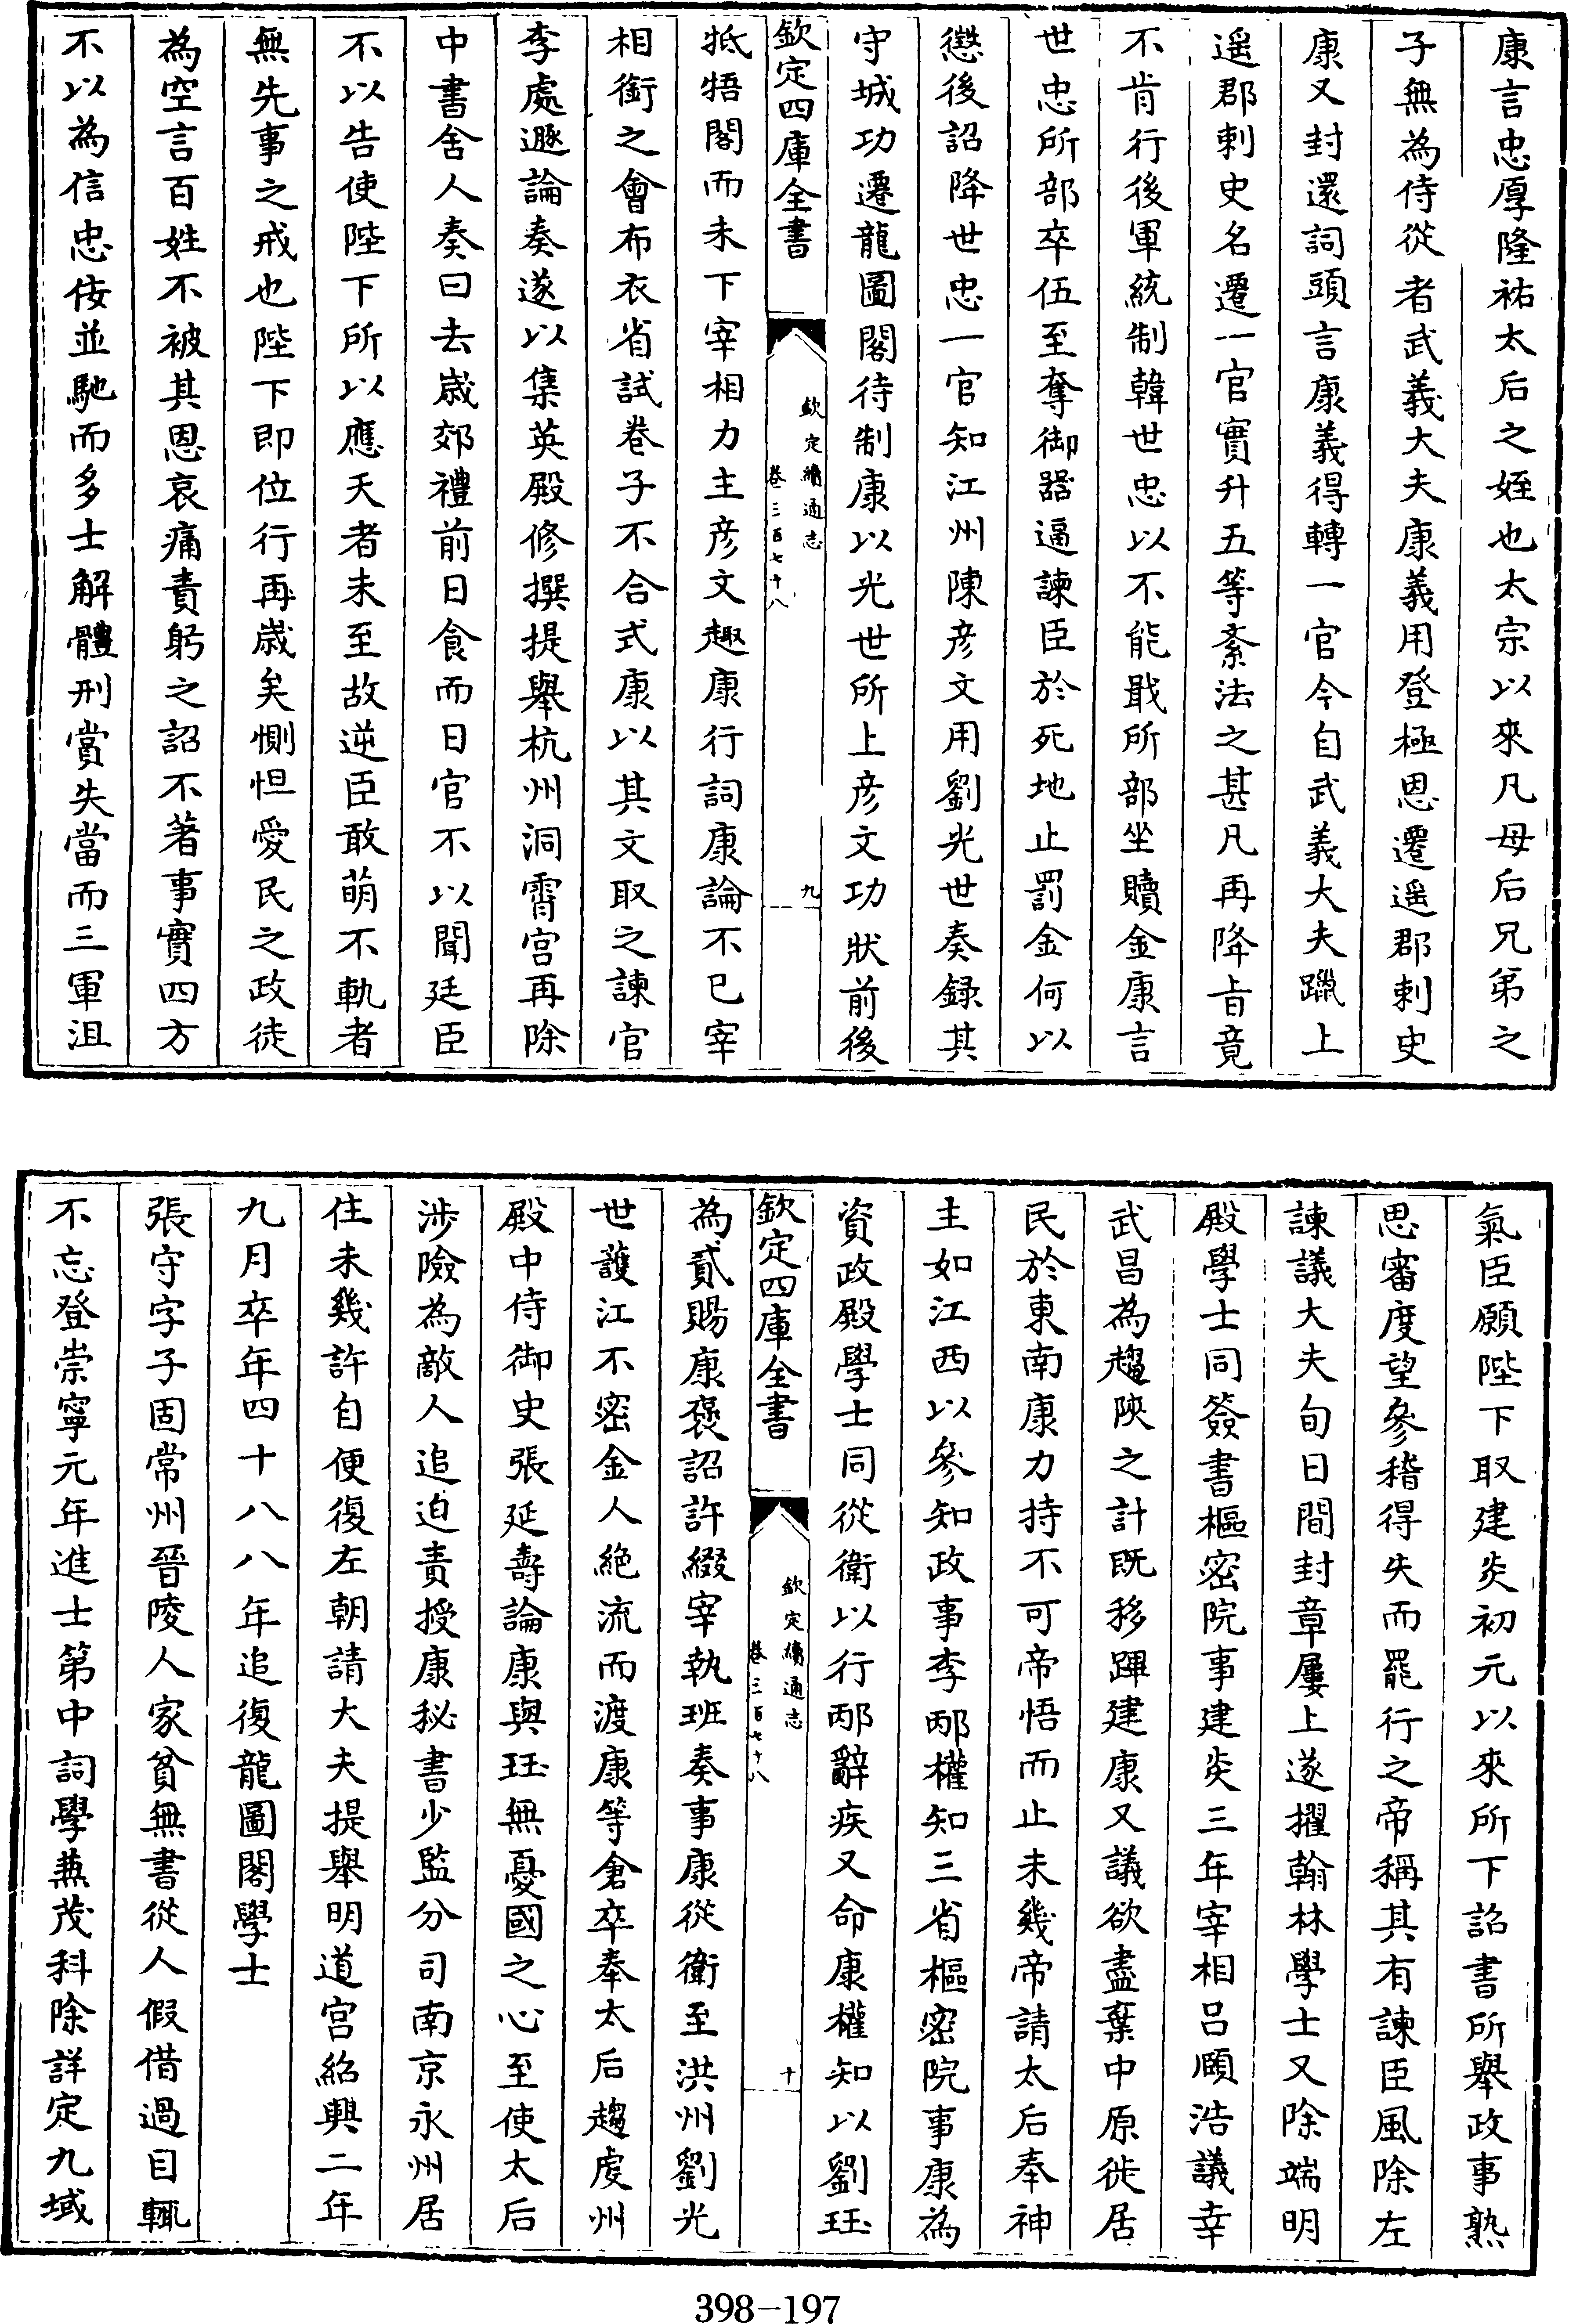 康言忠厚隆祐太后之姪也太宗以來凡母后兄弟之
子無為侍從者武義大夫康義用登極恩遷遥郡刺史
康又封還詞頭言康義得轉一官今自武義大夫躐上
遥郡刺史名遷一官實升五等紊法之甚凡再降旨竟
不肯行後軍統制韓世忠以不能戢所部坐贖金康言
世忠所部卒伍至奪御器逼諫臣於死地止罰金何以
懲後詔降世忠一官知江州陳彦文用劉光世奏録其
守城功遷龍圖閣待制康以光世所上彦文功狀前後
欽定四庫全書
欽定續通志
卷三百七十八
九
牴牾閣而未下宰相力主彦文趣康行詞康論不已宰
相銜之會布衣省試卷子不合式康以其文取之諫官
李處遯論奏遂以集英殿修撰提舉杭州洞霄宫再除
中書舍人奏曰去歲郊禮前日食而日官不以聞廷臣
不以告使陛下所以應天者未至故逆臣敢萌不軌者
無先事之戒也陛下即位行再歲矣惻怛愛民之政徒
為空言百姓不被其恩哀痛責躬之詔不著事實四方
不以為信忠佞並馳而多士解體刑賞失當而三軍沮
氣臣願陛下取建炎初元以來所下詔書所舉政事熟
思審度望參稽得失而罷行之帝稱其有諫臣風除左
諫議大夫旬日間封章屢上遂擢翰林學士又除端明
殿學士同簽書樞密院事建炎三年宰相吕頤浩議幸
武昌為趨陜之計既移蹕建康又議欲盡棄中原徙居
民於東南康力持不可帝悟而止未幾帝請太后奉神
主如江西以參知政事李邴權知三省樞密院事康為
資政殿學士同從衛以行邴辭疾又命康權知以劉珏
欽定四庫全書
欽定續通志
卷三百七十八
十
為貳賜康褒詔許綴宰執班奏事康從衛至洪州劉光
世護江不密金人絶流而渡康等倉卒奉太后趨虔州
殿中侍御史張延壽論康與珏無憂國之心至使太后
涉險為敵人追迫責授康秘書少監分司南京永州居
住未幾許自便復左朝請大夫提舉明道宫紹興二年
九月卒年四十八八年追復龍圖閣學士
張守字子固常州晉陵人家貧無書從人假借過目輒
不忘登崇寧元年進士第中詞學兼茂科除詳定九域
398-197